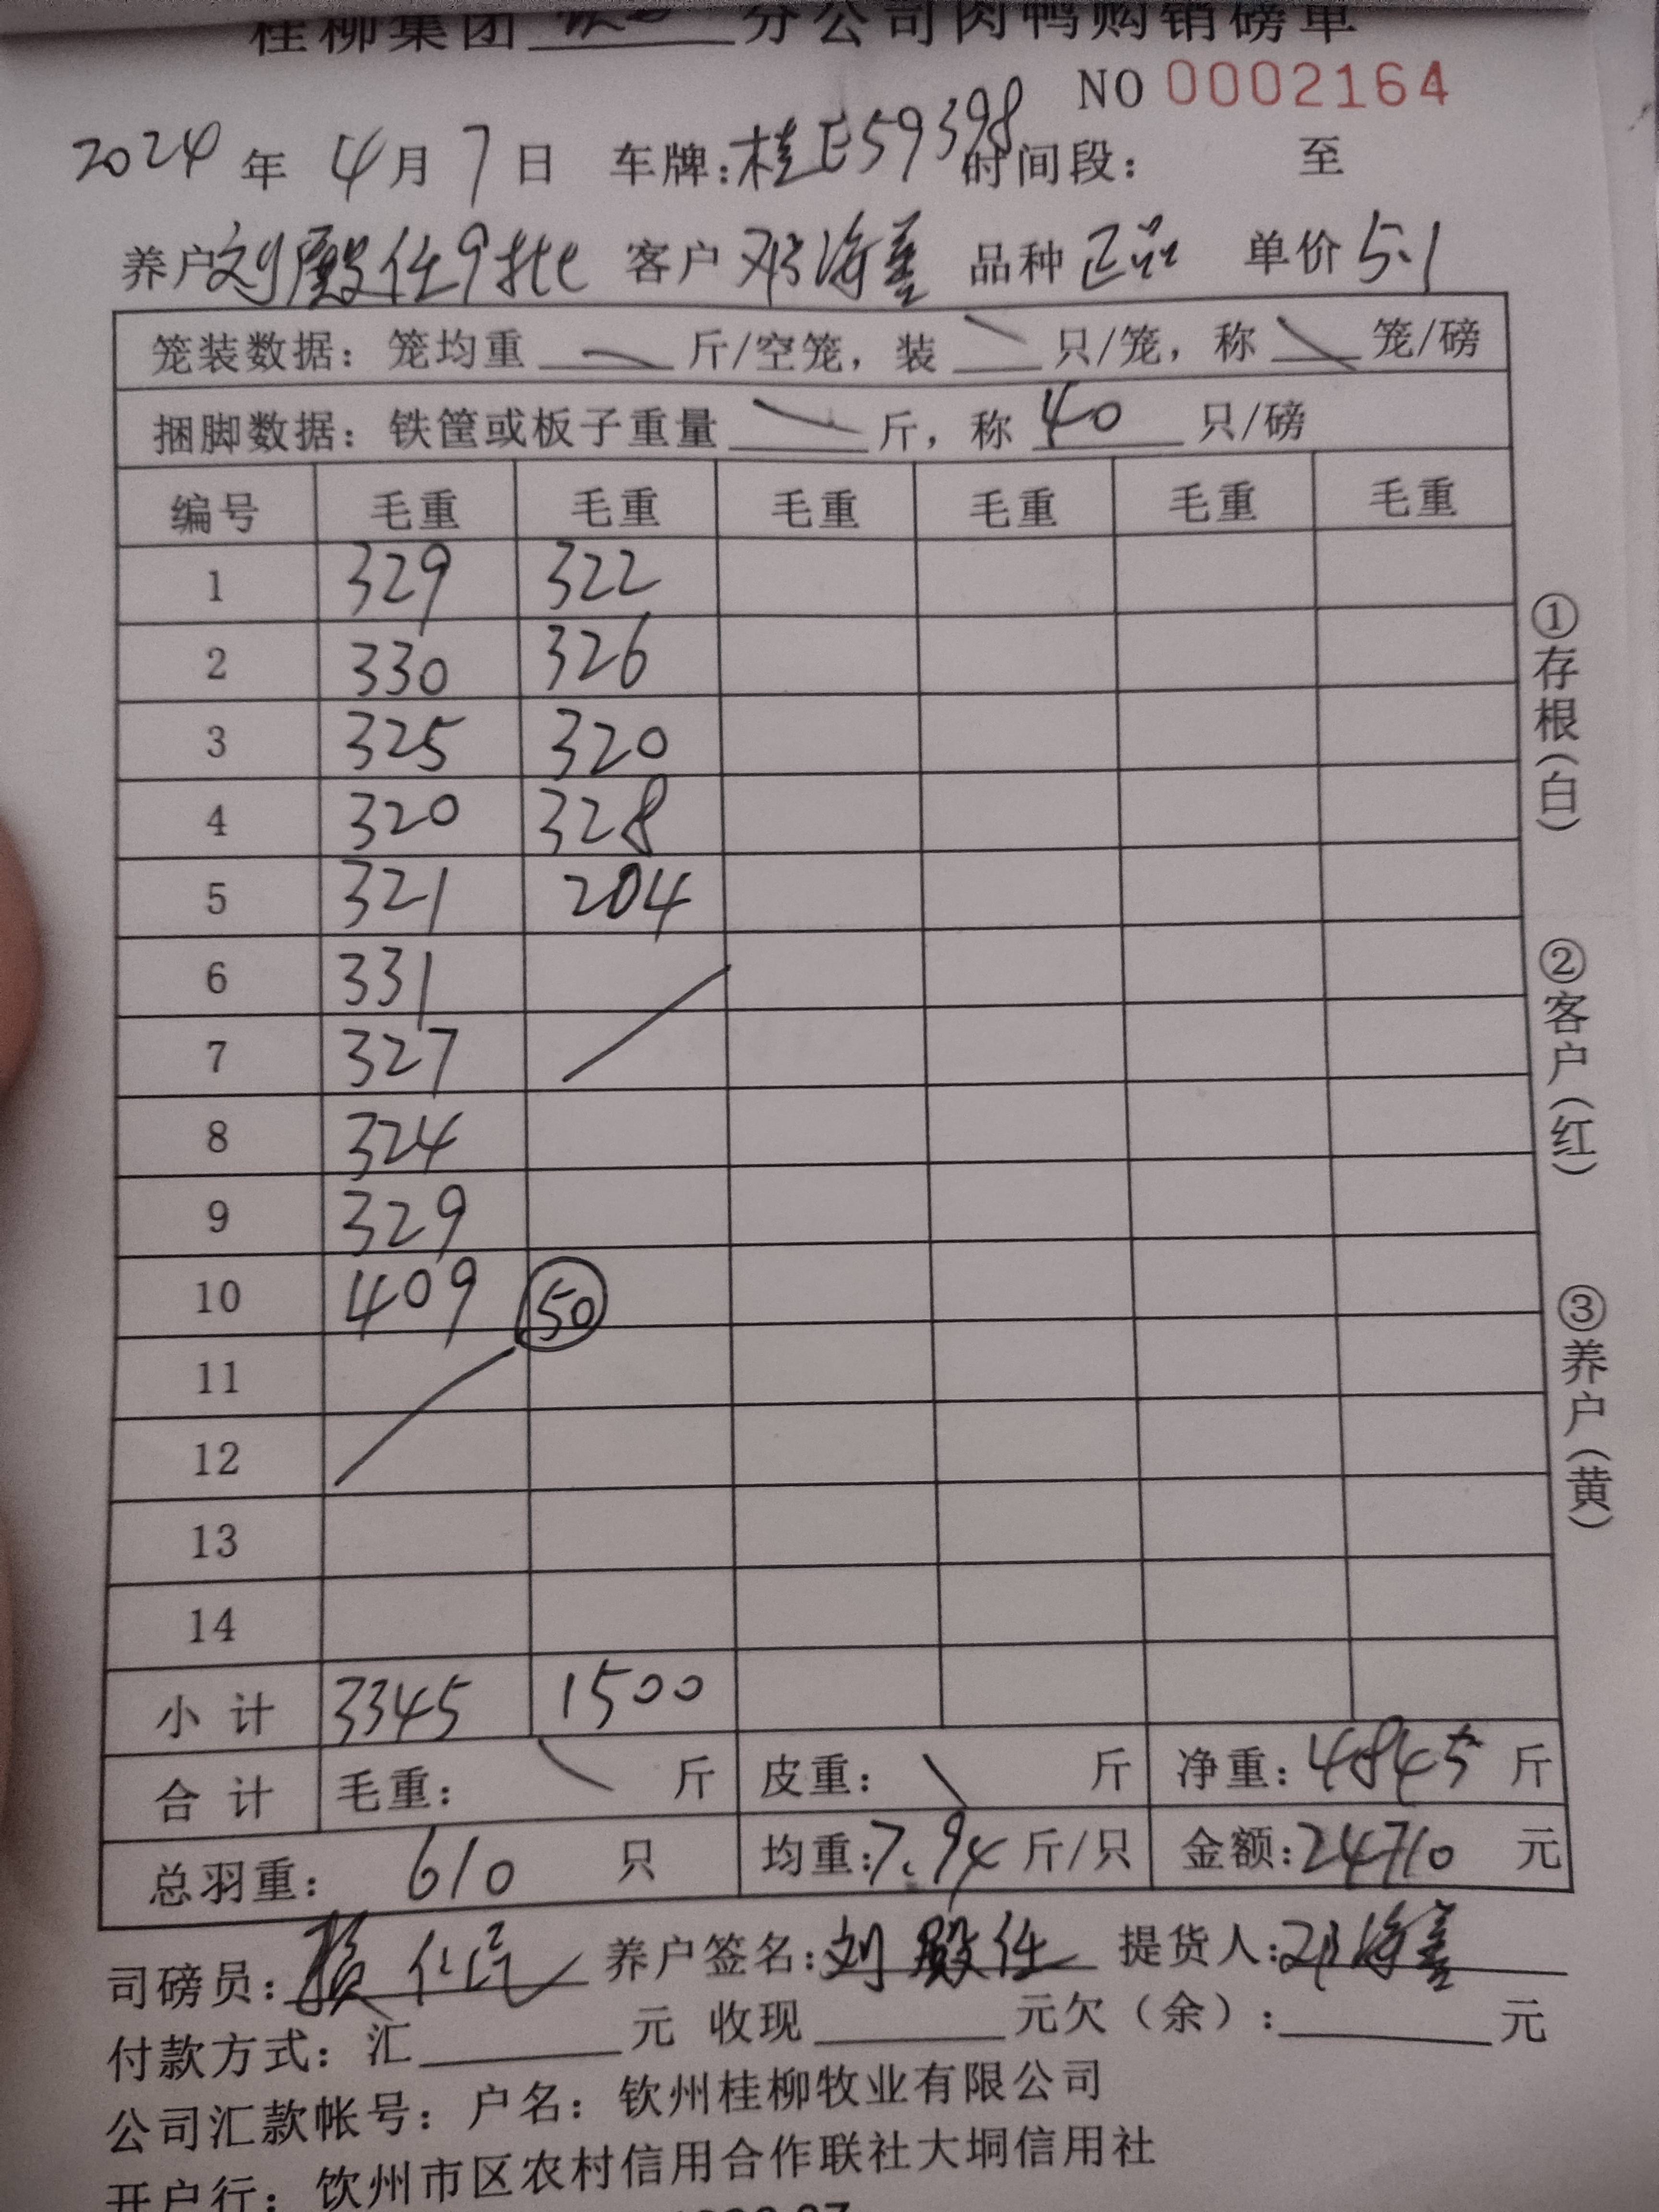 桂柳集团 分公司肉鸭购销磅单
NO 0002164
2024 年 4 月 7 日 车牌:桂E59398 时间段: 至
养户 刘殿任9批 客户 邓海善 品种 正品 单价 5.1
笼装数据: 笼均重 斤/空笼, 装 只/笼, 称 笼/磅
捆脚数据: 铁筐或板子重量 斤, 称 40 只/磅
编号 毛重 毛重 毛重 毛重 毛重 毛重
1 329 322
2 330 326
3 325 320
4 320 328
5 321 204
6 331
7 327
8 324
9 329
10 409 50
11
12
13
14
小计 3345 1500
合计 毛重: 斤 皮重: 斤 净重: 4845 斤
总羽重: 610 只 均重: 7.94 斤/只 金额: 24710 元
司磅员: 养户签名: 刘殿任 提货人: 邓海善
付款方式: 汇 元 收现 元欠(余): 元
公司汇款帐号: 户名: 钦州桂柳牧业有限公司
开户行: 钦州市区农村信用合作联社大垌信用社
①存根(白)
②客户(红)
③养户(黄)